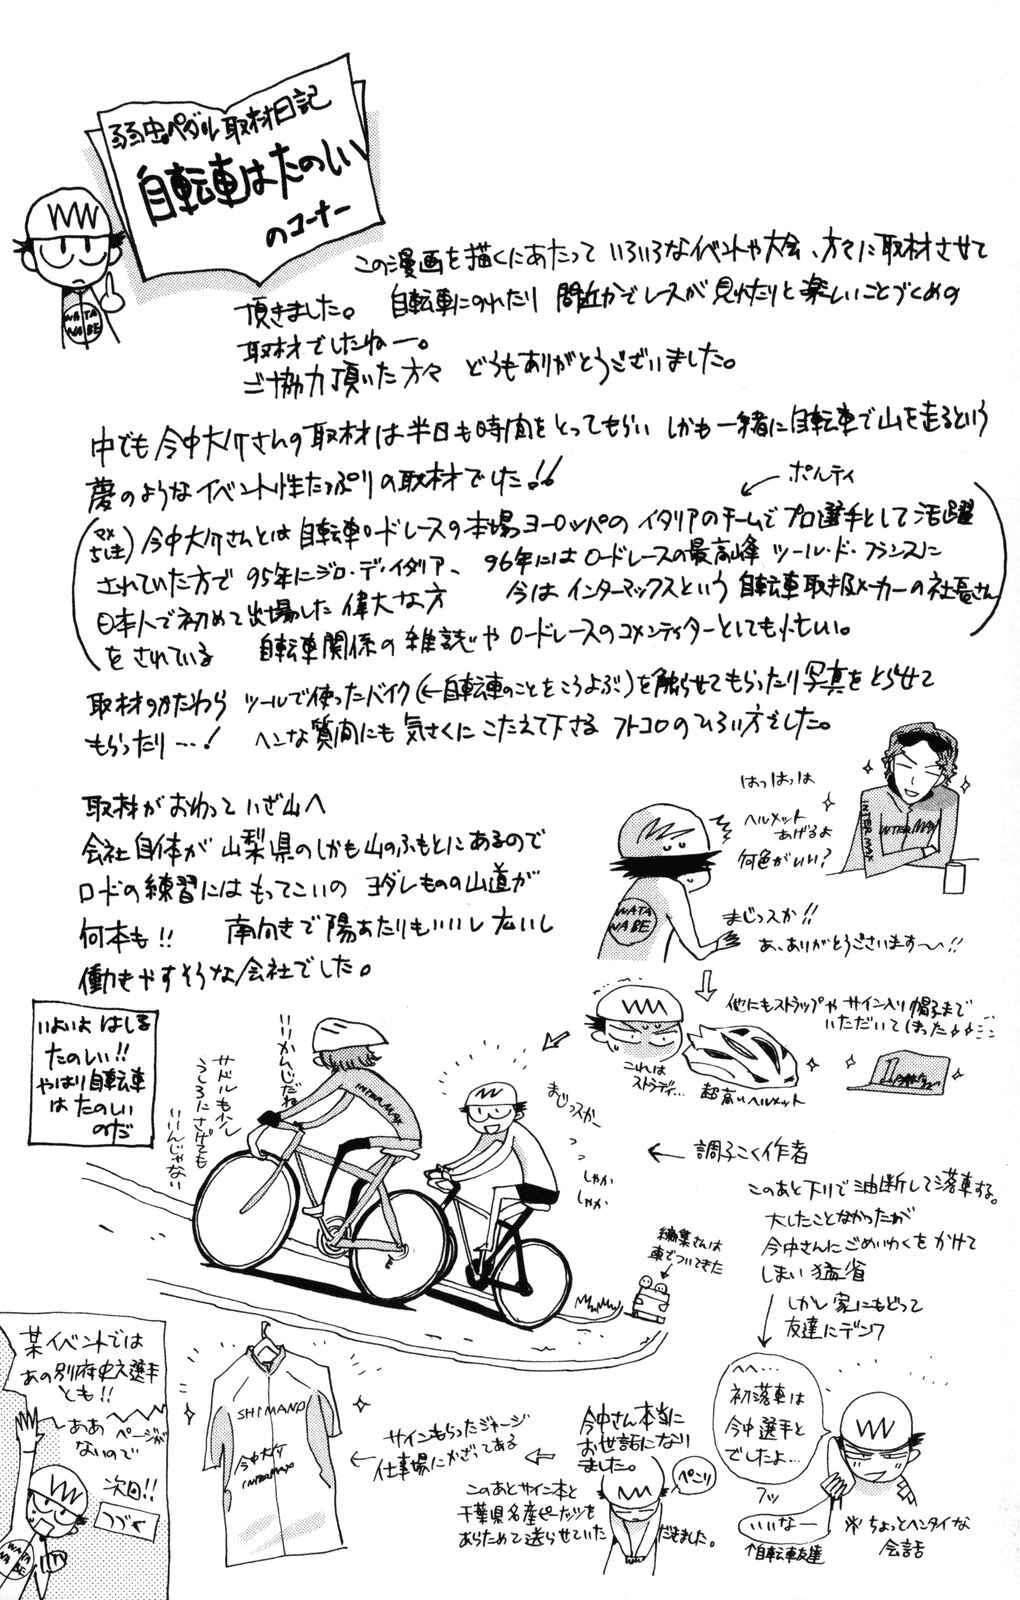 弱虫ペダル取材日記
自転車はたのしい
のコーナー
WATA
NABE
この漫画を描くにあたって いろいろなイベントや大会、方々に取材させて
頂きました。 自転車にのれたり 間近かでレースが見れたりと楽しいことづくめの
取材でしたねー。
ご協力頂いた方々 どうもありがとうございました。
中でも今中大介さんの取材は半日も時間をとってもらい しかも一緒に自転車で山を走るという
夢のようなイベント性たっぷりの取材でした!!
ポルティ
今中大介さんとは自転車ロードレースの本場ヨーロッパのイタリアのチームでプロ選手として活躍
されていた方で 95年にジロ・デ・イタリア、 96年にはロードレースの最高峰 ツール・ド・フランスに
日本人で初めて出場した偉大な方 今はインターマックスという自転車取扱メーカーの社長さん
をされている 自転車関係の雑誌やロードレースのコメンテイターとしても忙しい。
取材のかたわら ツールで使ったバイク(←自転車のことをこうよぶ)を触らせてもらったり写真をとらせて
もらったり…! ヘンな質問にも気さくにこたえて下さる フトコロのひろい方でした。
取材がおわって いざ山へ
会社自体が山梨県のしかも山のふもとにあるので
ロードの練習にはもってこいの ヨダレものの山道が
何本も!! 南向きで陽あたりもいいし広いし
働きやすそうな会社でした。
はっはっは
ヘルメット
あげるよ
何色がいい?
INTER MAX
INTERMAX
WATA
NABE
まじっスか!!
あ、ありがとうございます〜!!
他にもストラップや サイン入り帽子まで
いただいてしまった
これは
ストラディ…
超高いヘルメット
いよいよ はしる
たのしい!!
やはり自転車
はたのしい
のだ
いいかんじだね
サドルも少し
うしろにさげても
いいんじゃない
INTERMAX
まじっスかー
しゃか
しゃか
← 調子こく作者
このあと下りで油断して落車する。
大したことなかったが
今中さんにごめいわくをかけて
しまい猛省
しかし家にもどって
友達にデンワ
編集さんは
車でついてきた
へへ…
初落車は
今中選手と
でしたよ…
フッ
いいなー
↑自転車友達
※ちょっとヘンタイな
会話
今中さん本当に
お世話になり
ました。
ぺこり
このあとサイン本と
千葉県名産ピーナッツを
あらためて送らせていただきました。
サインもらったジャージ
仕事場にかざってある
SHIMANO
今中大介
INTERMAX
某イベントでは
あの別府史之選手
とも!!
ああ ページが
ないので
次回!!
つづく
WATA
NABE